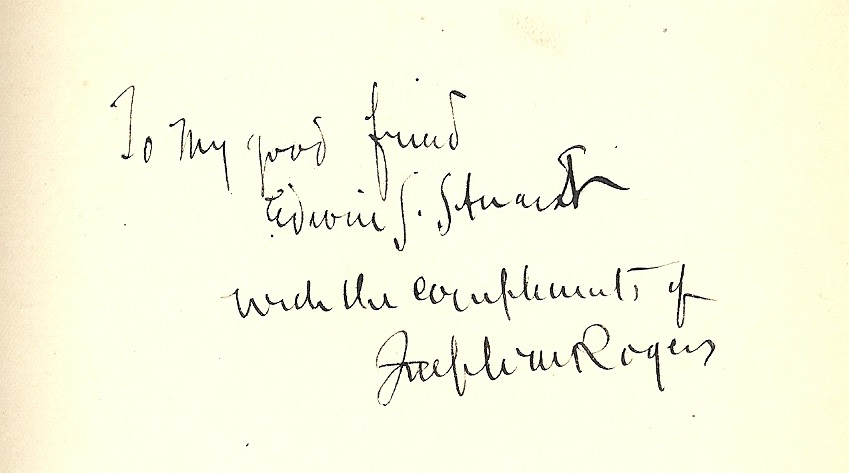 To my good friend
Edwin S. Stuart
with the compliments of
Joseph M Rogers